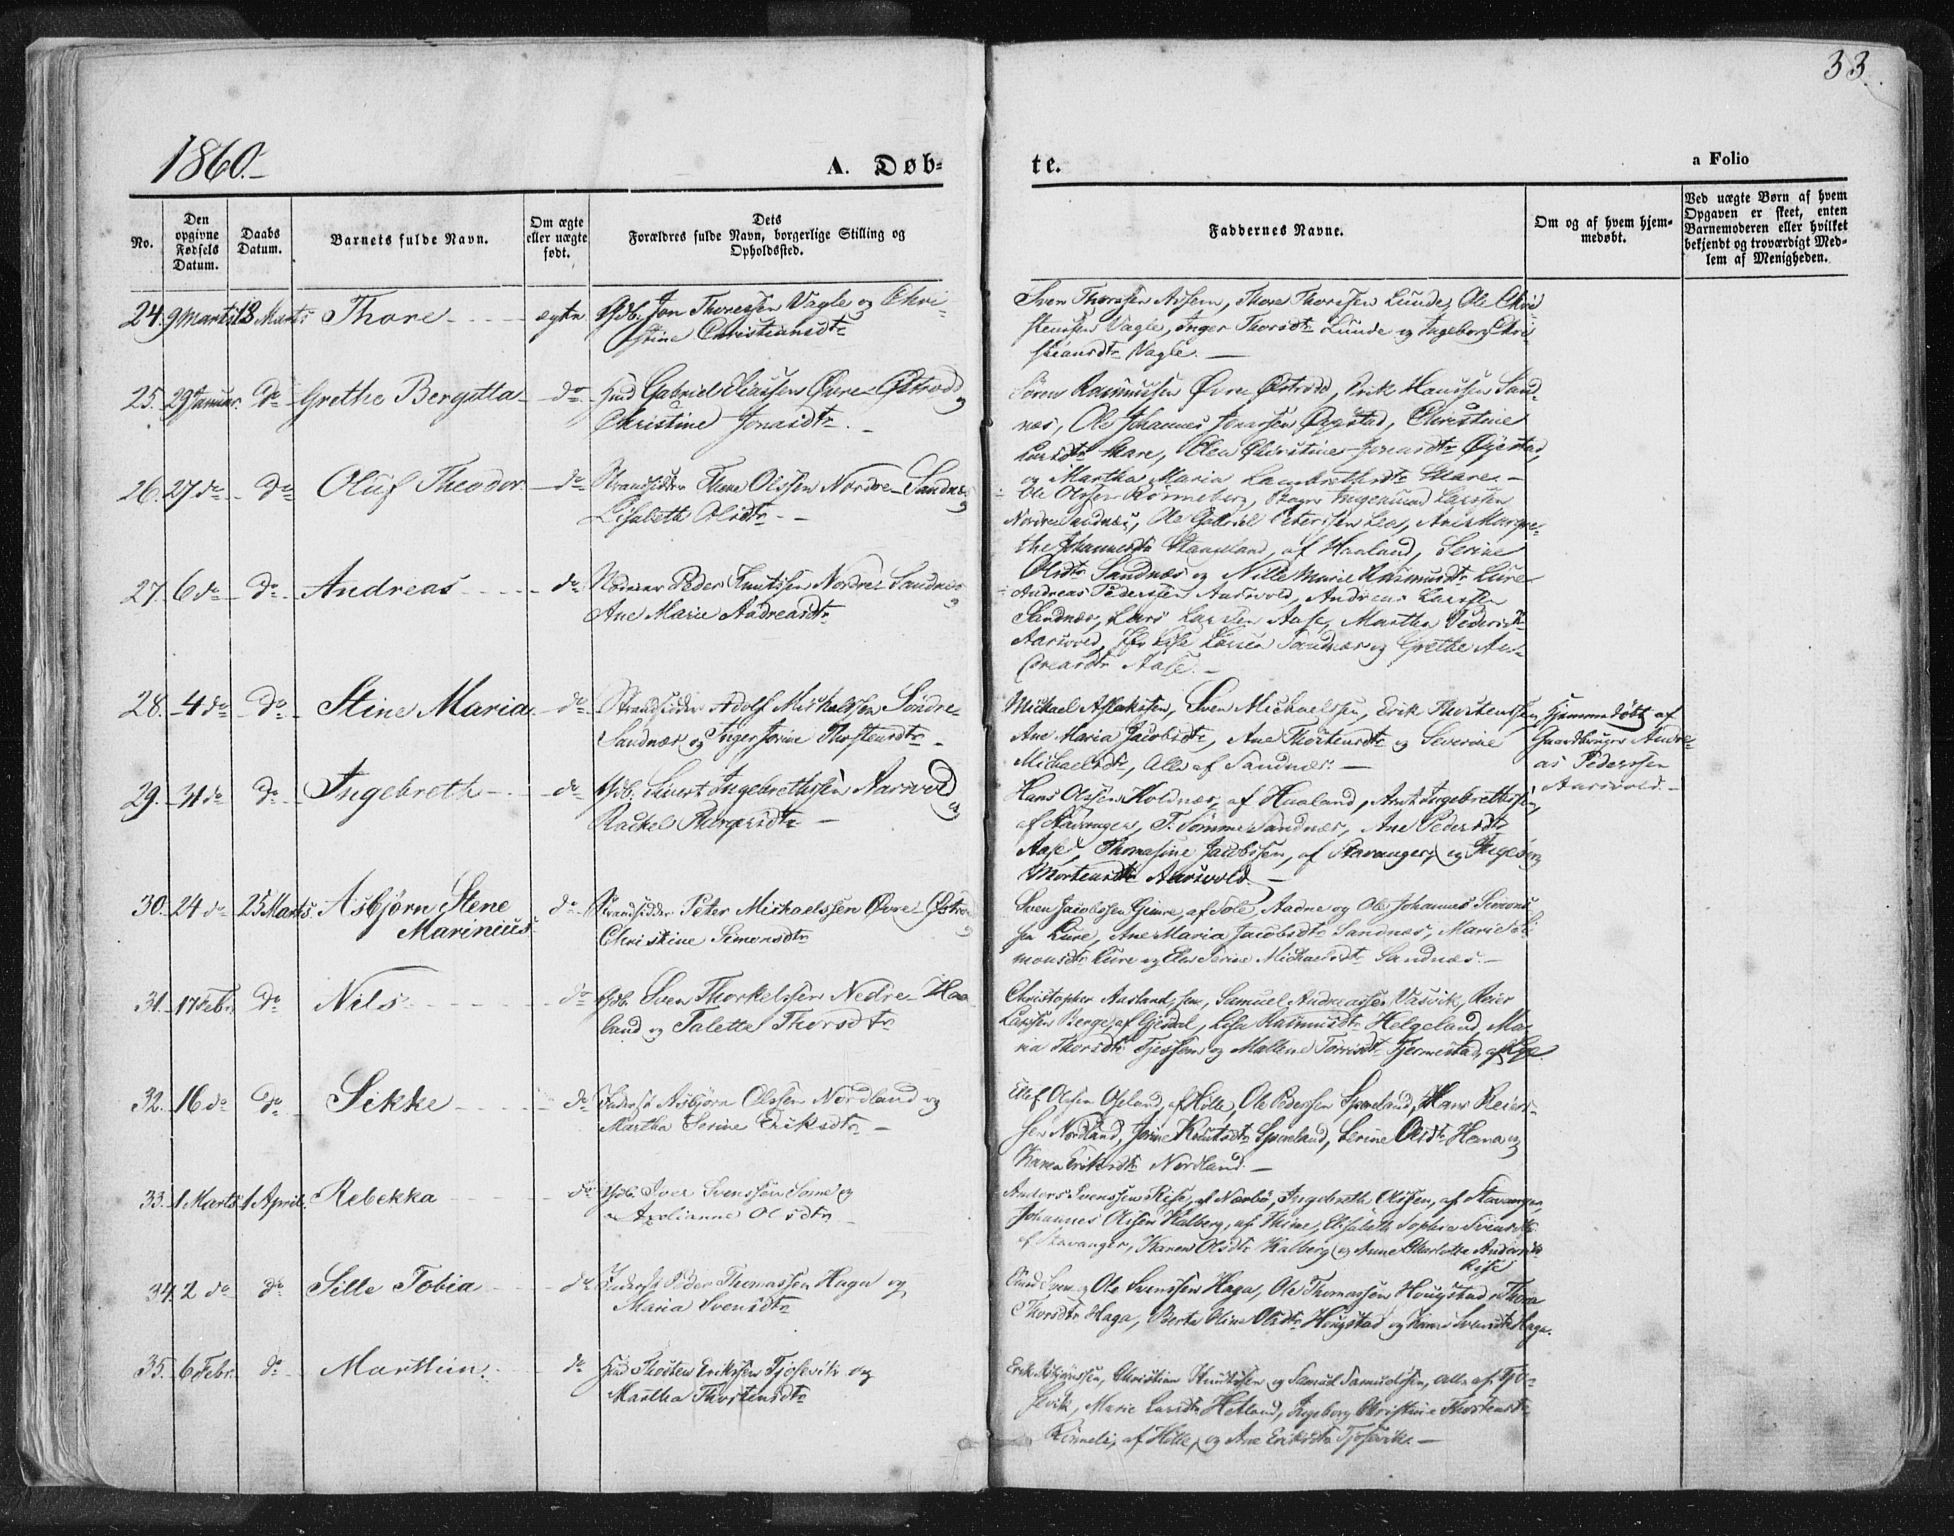 33.
1860.
A. Døb-
te.
a Folio
No.
Den
opgivne
Fødsels
Datum.
Daabs
Datum.
Barnets fulde Navn.
Om ægte
eller uægte
født.
Dets
Forældres fulde Navn, borgerlige Stilling og
Opholdssted.
Faddernes Navne.
Om og af hvem hjem-
medøbt.
Ved uægte Børn af hvem
Opgaven er skeet, enten
Barnemoderen eller hvilket
bekjendt og troværdigt Med-
lem af Menigheden.
24. 9 Marts 18 Marts Thore ægte Gdb. Jon Thoressen Vagle og Chri-
stine Christiansdtr
Sven Thorssen Thore Thoressen Lunde, Ole Chri
stenssen Vagle, Inger Thorsdtr Lunde og Ingeborg Chri
stiansdtr Vagle. —
25. 29 Januar do Grethe Bergitta do Huusmd Gabriel Eliassen Øvre Østraad og
Christine Jonasdtr.
Sören Rasmussen Øvre Østraad, Erik Hanssen Sand-
næs, Ole Johannes Jonassen Christine
Larsdtr Skare, Elen Christine Jonasdtr
og Martha Maria Lambrethsdtr Skare. —
26. 27 do do Oluf Theodor do Strandsidder Thore Olssen Nordre Sandnæs og
Lisabeth Olsdtr
Ole Olssen Rönneberg, Ingemund Larssen
Nordre Sandnæs, Ole Gabriel Peterssen Lea, Ane Margre-
the Johannesdtr Stangeland, af Haaland, Serine
Olsdtr Sandnæs og Nille Marie Rasmusdtr Lure
27. 6 do do Andreas do Peder Knutssen Nordre Sandnæs og
Ane Marie Andreasdtr
Andreas Pederssen Aarsvold, Andreas Larssen
Sandnæs, Lars Larssen Aase, Martha Pedersdtr
Aarsvold, Lise Larsen Sandnæs og Grethe An-
dreasdtr Aase. —
28. 4 do do Stine Maria do Strandsidder Adolf Michalssen Söndre
Sandnæs og Inger Serine Thorstensdtr
Michael Aslakssen, Sven Michaelssen, Erik Thorstenssen
Ane Maria Jacobsdtr, Ane Thorstensdtr og Severine
Michaelsdtr, Alle af Sandnæs. —
Hjemmedöbt af
Gaardbruger Andre-
as Pederssen
Aarsvold. —
29. 31 do do Ingebreth do Gdb. Sivert Ingebrethssen Aarsvold og
Rachel Børgersdtr —
Hans Olssen Holdnæs, af Haaland, Arnt Ingebrethssen,
af Stavanger, T. Sömme Sandnæs, Ane Pedersdtr
Aase, Thomasine Jacobssen, af Stavanger, og Ingeborg
Mortensdtr Aarsvold —
30. 24 do 25 Marts. Asbjørn Stene
Marinius do Strandsidder Peter Michaelssen Øvre Østraa og
Christine Simonsdtr
Sven Jacobssen Gimre, af Sole, Aadne og Ole Johannes Simons
sen Lure, Ane Maria Jacobsdtr Sandnæs, Marie Si
monsdtr Lure og Elen Serine Michaelsdtr Sandnæs. —
31. 17 Febr do Nils do Gdb. Sven Thorkelssen Nedre Haa
land og Talette Thorsdtr
Christopher Samuel Andreassen Vasvik, Reier
Larssen Berge, af Gjesdal, Lisa Rasmusdtr Helgeland, Ma-
ria Thorsdtr og Mallene Tjermestad,
32. 16 do do Sikke do Inderst Asbjörn Olssen Nordland og
Martha Serine Eriksdtr —
Ellef Olssen Oseland, af Hölle, Ole Pederssen Speeland, Hans Reiers-
sen Nordland, Jorine Knutsdtr Speeland, Serine Olsdtr Hana og
Karen Eriksdtr Nordland. —
33. 1 Marts 1 April Rebekka do Gdb. Iver Svenssen Some og
Axelianne Olsdtr
Anders Svenssen Rise, af Nærbö, Ingebreth Olssen, af Stavanger,
Johannes Olssen Kalberg, af Thime, Elisabeth Sophia Svensdtr
af Stavanger, Karen Olsdtr Kalberg og Anne Charlotte Andersdtr
Rise
34. 2 do do Sille Tobia do Inderst Peder Thomassen Haga og
Maria Svensdtr
Sven og Ole Svenssen Haga, Ole Thomassen Hougstad, Thora
Thorsdtr Haga, Berte Oline Olsdtr Hougstad og Svensdtr Haga.
35. 6 Febr. do Marthin. do Thosten Erikssen Tjosevik og
Martha Thorstensdtr
Erik Asbjörnssen, Christian Knutssen og Samuel Samuelssen, alle af Tjö-
sevik, Marie Larsdtr Hetland, Ingeborg Christine Thorstensdtr
af Hölle, og Ane Eriksdtr Tjosevik. —